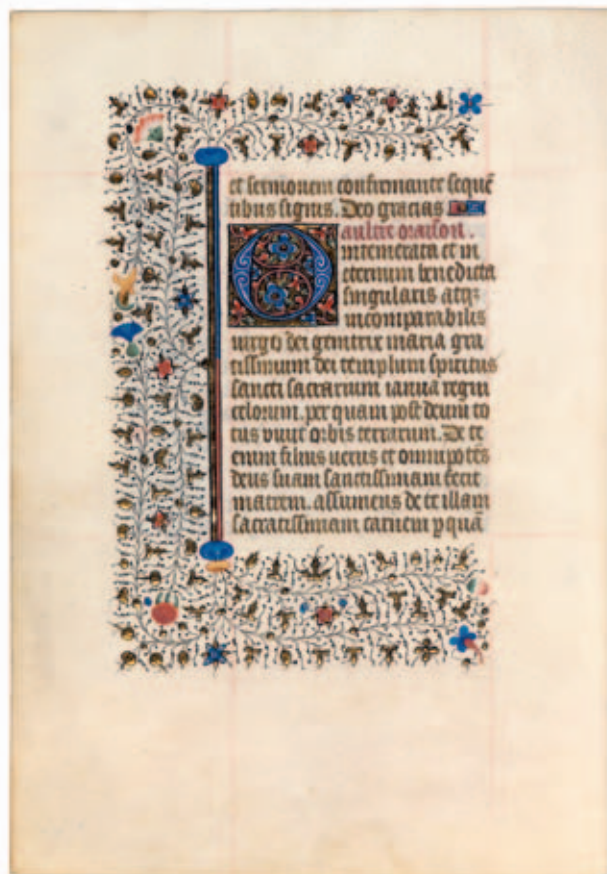 et sermonem confirmante sequē
tibus signis. Deo gracias
aultre oraison.
O intemerata et in
eternum benedicta
singularis atqꝫ
incomparabilis
uirgo dei genitrix maria gra
tissimum dei templum spiritus
sancti sacrarium ianua regni
celorum. per quam post deum to
tus viuit orbis terrarum. De te
enim filius uerus et omnipotēs
deus suam sanctissimam fecit
matrem. assumens de te illam
sacratissimam carnem p quā